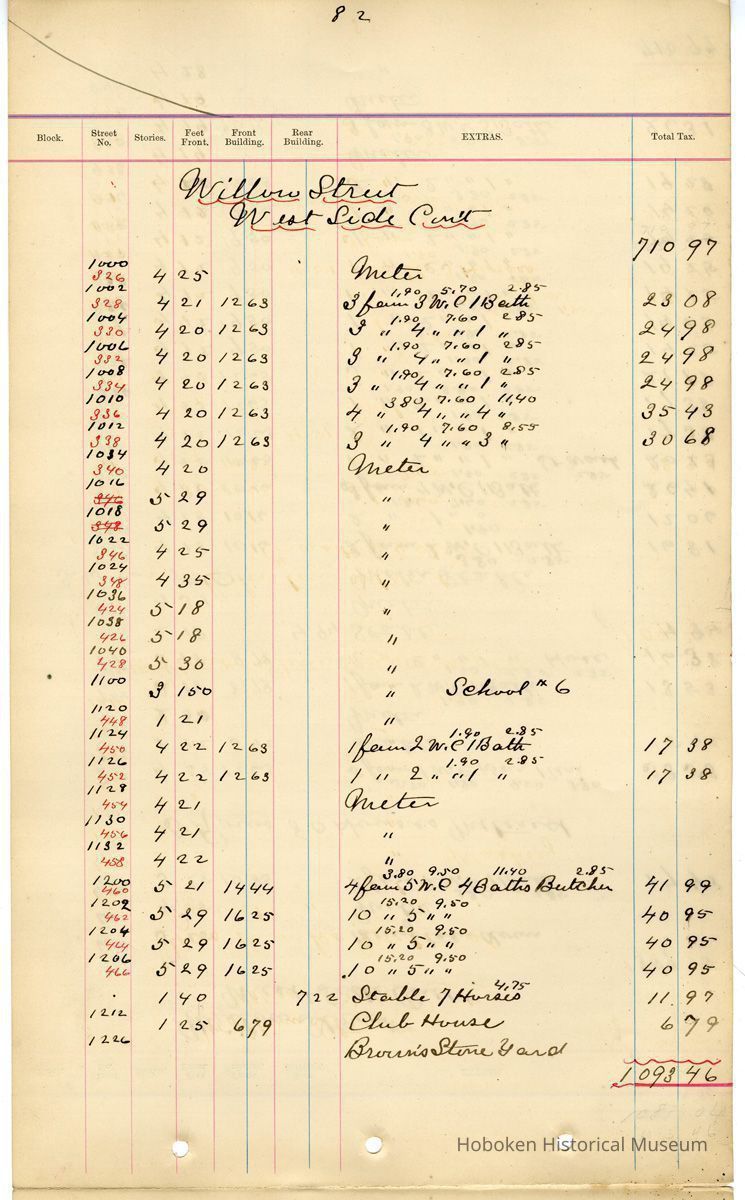 82
Block. Street No. Stories. Feet Front. Front Building. Rear Building. EXTRAS. Total Tax.
Willow Street
West Side Cont
710 97
1000
326 4 25 Meter
1002 1.90 5.70 2.85
328 4 21 12 63 3 fam 3 W.C 1 Bath 23 08
1004 1.90 7.60 2.85
330 4 20 12 63 3 " 4 " " 1 " 24 98
1006 1.90 7.60 2.85
332 4 20 12 63 3 " 4 " " 1 " 24 98
1008 1.90 7.60 2.85
334 4 20 12 63 3 " 4 " " 1 " 24 98
1010 3.80 7.60 11.40
336 4 20 12 63 4 " 4 " " 4 " 35 43
1012 1.90 7.60 8.55
338 4 20 12 63 3 " 4 " " 3 " 30 68
1034
340 4 20 Meter
1016
5 29 "
1018
348 5 29 "
1022
346 4 25 "
1024
348 4 35 "
1036
424 5 18 "
1038
426 5 18 "
1040
428 5 30 "
1100
3 150 " School # 6
1120
448 1 21 "
1124 1.90 2.85
450 4 22 12 63 1 fam 2 W.C 1 Bath 17 38
1126 1.90 2.85
452 4 22 12 63 1 " 2 " " 1 " 17 38
1128
454 4 21 Meter
1130
456 4 21 "
1132
458 4 22 "
1200 3.80 9.50 11.40 2.85
460 5 21 14 44 4 fam 5 W.C 4 Baths Butcher 41 99
1202 15.20 9.50
462 5 29 16 25 10 " 5 " " 40 95
1204 15.20 9.50
464 5 29 16 25 10 " 5 " " 40 95
1206 15.20 9.50
466 5 29 16 25 10 " 5 " " 40 95
4.75
1 40 7 22 Stable 7 Horses 11 97
1212
1 25 6 79 Club House 6 79
1226
Brown's Stone Yard
1 093 46
Hoboken Historical Museum